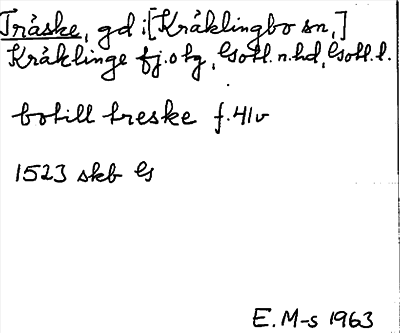 Träske, gd i [Kräklingbo sn,]
Kräklinge fj. o tg, Gotl. n. hd, Gotl. l.
botill treske f. 41v
1523 skb G
E. M-s 1963